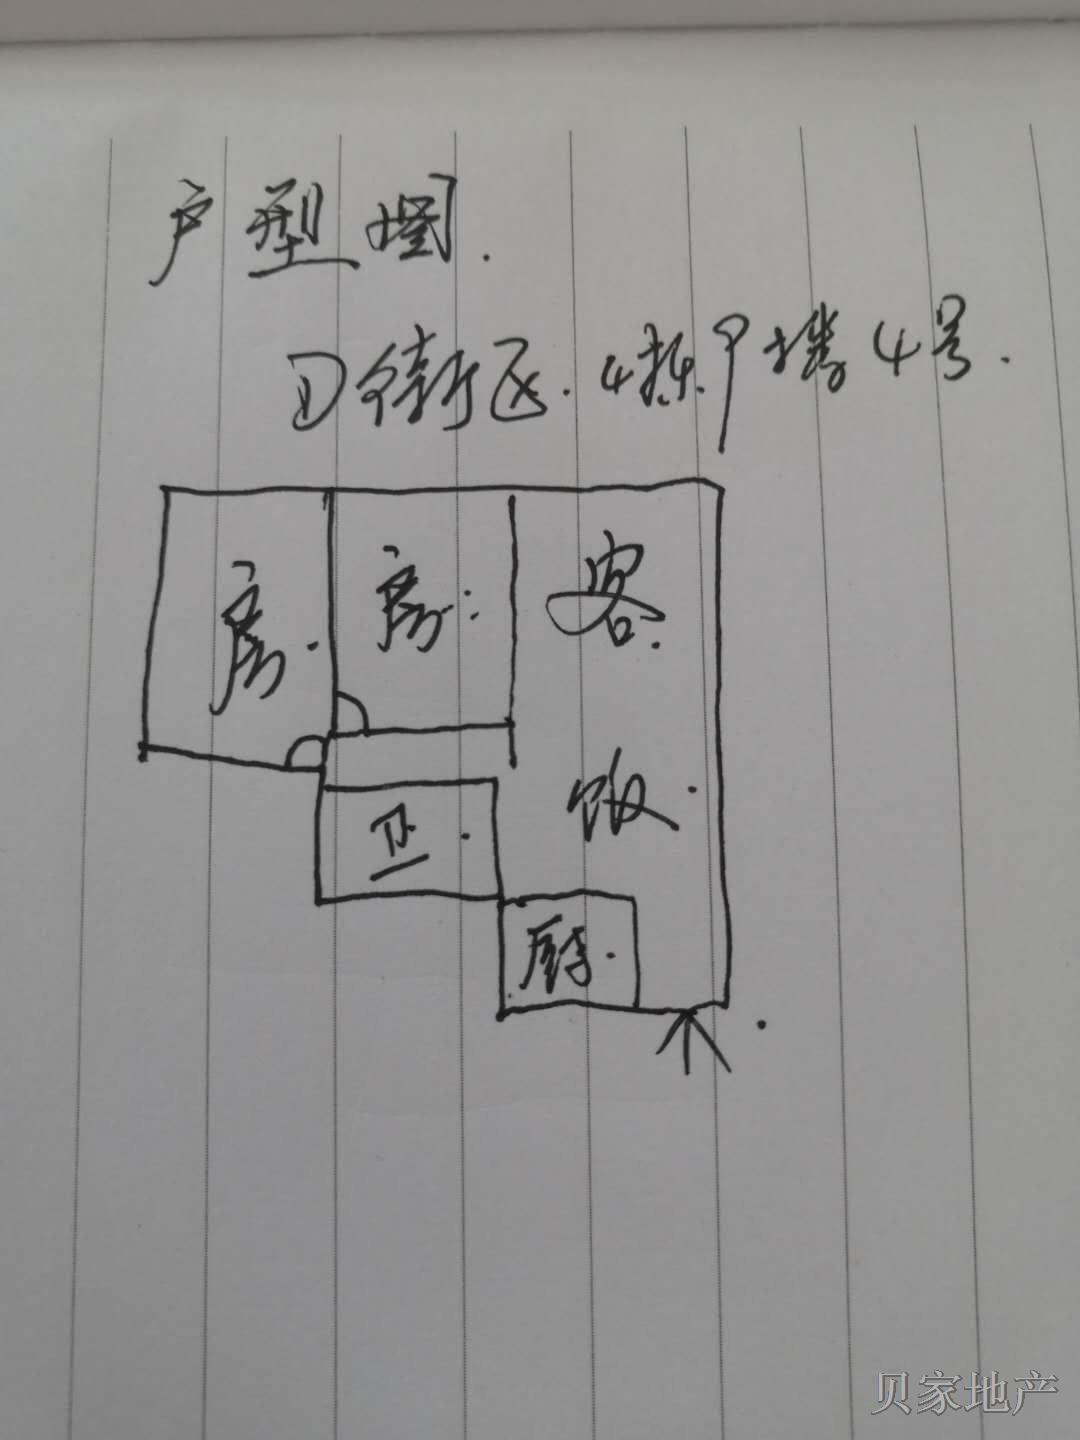 户型图.
D街区.4栋9楼4号.
房.
房.
客.
饭.
卫.
厨.
贝家地产